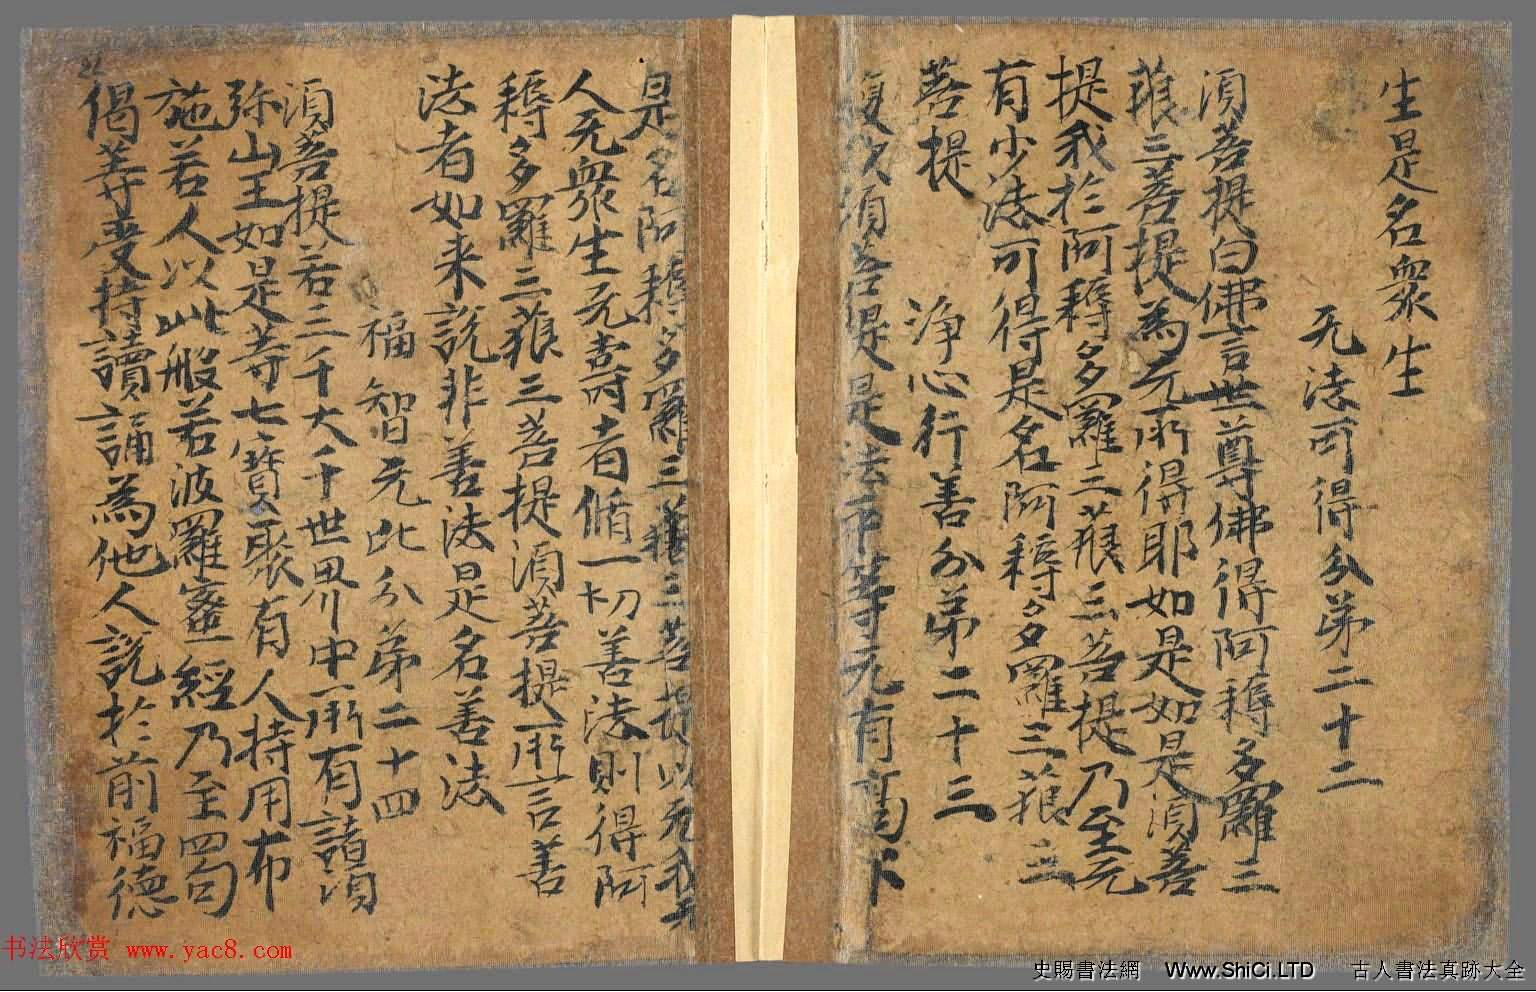 生是名衆生
无法可得分第二十二
須菩提白佛言世尊佛得阿耨多羅三
藐三菩提為无所得耶如是如是須菩
提我於阿耨多羅三藐三菩提乃至无
有少法可得是名阿耨多羅三藐三
菩提
淨心行善分第二十三
復次須菩提是法平等无有高下
是名阿耨多羅三藐三菩提以无我无
人无衆生无壽者脩一切善法則得阿
耨多羅三藐三菩提須菩提所言善
法者如来說非善法是名善法
福智无比分第二十四
須菩提若三千大千世界中所有諸須
弥山王如是等七寶聚有人持用布
施若人以此般若波羅蜜經乃至四句
偈等受持讀誦為他人說於前福德
21
书法欣赏 www.yac8.com
史賜書法網 Www.ShiCi.LTD 古人書法真跡大全